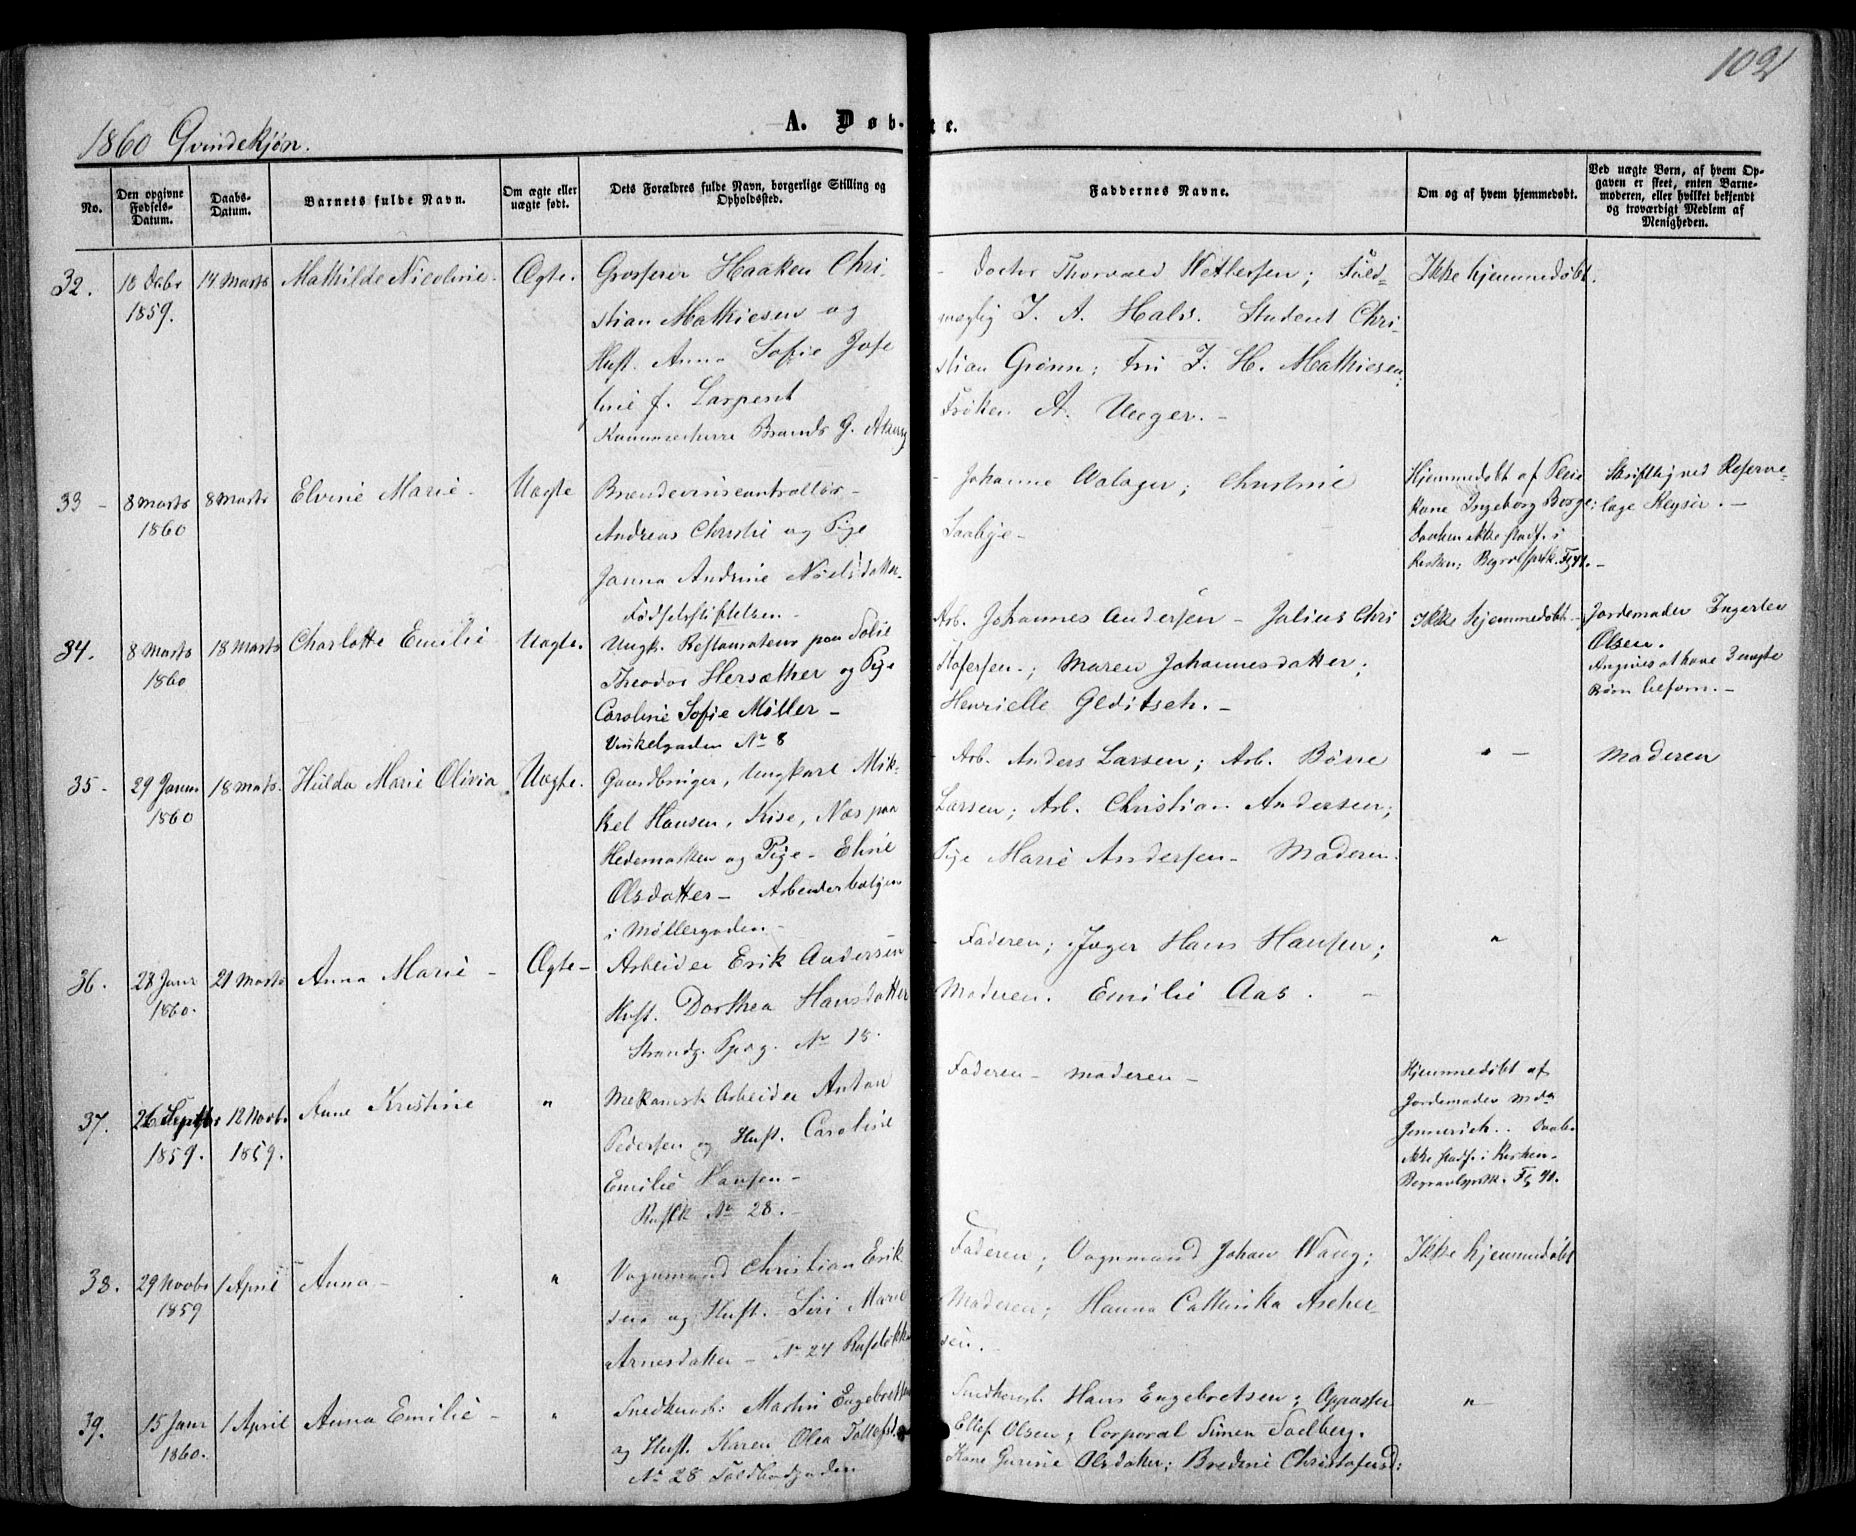 102
A. Døb- te.
1860 Qvindekjøn.
No.
Den opgivne Fødsels-Datum.
Daabs-Datum.
Barnets fulde Navn.
Om ægte eller uægte født.
Dets Forældres fulde Navn, borgerlige Stilling og Opholdssted.
Faddernes Navne.
Om og af hvem hjemmedøbt.
Ved uægte Børn, af hvem Opgaven er skeet, enten Barnemoderen, eller hvilket bekjendt og troværdigt Medlem af Menigheden.
32. 10 Debr 14 Marts Mathilde Nicoline. Ægte.
1859.
Grosserer Haaken Chri-
stian Mathiesen og
Hust. Anna Sofie Jose
line f. Larpent
Kammerherre Brands G.
Doctor Thorvald Wetlesen; Fuld-
mægtig J. A. Hals. Student Chri-
stian Grønn; Fru J. H. Mathiesen;
Frøken A. Unger. -
Ikke hjemmedøbt.
33 - 8 Marts 8 Marts Elvine Marie - Uægte
1860
Brændeviinscontrollør -
Andreas Christie og Pige
Janna Andrine Nielsdatter.
Fødselsstiftelsen. -
Johanne ; Christine
Saabye -
Hjemmedøbt af Pleie
Kone Ingeborg Borge;
Daaben ikke stadf. i
Kirken;
Skriftlig ved Reserve-
læge Keyser. -
34. 8 Marts 18 Marts Charlotte Emilie Uægte.
1860
Ungk. Restaurateur paa
Theodor Hersæther og Pige
Caroline Sofie Møller -
Vinkelgaden No 8
Arb. Johannes Andersen - Julius Chri
stofersen. ; Maren Johannesdatter;
Henriette Gleditsch. -
Ikke hjemmedøbt -
Jordemoder
Olsen.
Angives at have 3 uægte
Børn -
35. 29 Janu 18 Marts. Hulda Marie Olivia Uægte.
1860
Gaardbruger, Ungkarl Mik-
kel Hansen, Kise, Næs paa
Hedemarken og Pige - Eline
Olsdatter -
i Møllergaden -
Arb. Anders Larsen; Arb. Børre
Larsen; Arb. Christian Andersen;
Pige Marie Andersen - Moderen.
" -
Moderen
36. 28 Janr 21 Marts Anna Marie - Ægte -
1860.
Arbeider Erik Andersen
Hust. Dorthea Hansdatter
No 15.
Faderen; Jæger Hans Hansen;
Moderen. Emilie Aas. -
"
37. 26 Septbr 12 Novbr Anne Kristine "
1859. 1859.
Mekanisk Arbeider Anton
Pedersen og Hust. Caroline
Emilie Hansen -
No 28. -
Faderen - Moderen -
Hjemmedøbt af
Jordemoder
Daab-
ikke stadf. i Kirken -
38. 29 Novbr 1 April Anna - "
1859
Vognmand Christian Erik
sen og Hust. Siri Marie
Arnesdatter - No 24
Faderen; Vognmand Johan Waug;
Moderen; Hanna Cathinka Ascher-
sen. -
Ikke hjemmedøbt
39. 15 Janr 1 April Anna Emilie - "
1860.
Martin Engebretsen
og Hust. Karen Olea
No 28 Toldbodgaden
Hans Engebretsen;
Ellef Olsen; Corporal Simen Solberg.
Kone Gurine Olsdatter; Bredine Christofersd:
" -